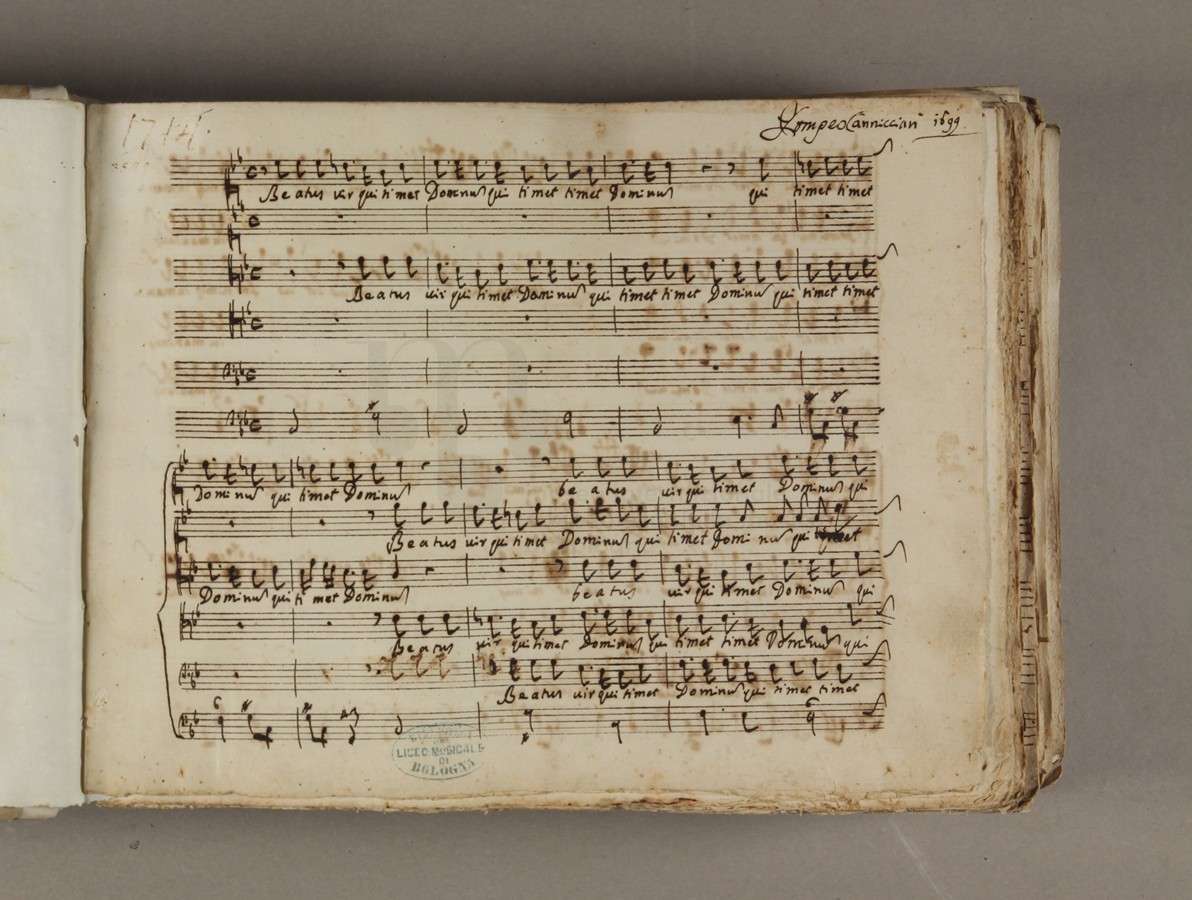 1714.
Pompeo Cannicciari 1699
Beatus vir qui timet Dominus qui timet timet Dominus qui timet timet
Beatus vir qui timet Dominus qui timet timet Dominus qui timet timet
Dominus qui timet Dominus beatus vir qui timet Dominus qui
Beatus vir qui timet Dominus qui timet Dominus qui
Dominus qui timet Dominus beatus vir qui timet Dominus qui
Beatus vir qui timet Dominus qui timet timet Dominus qui
Beatus vir qui timet Dominus qui timet timet
LICEO MUSICALE
DI
BOLOGNA